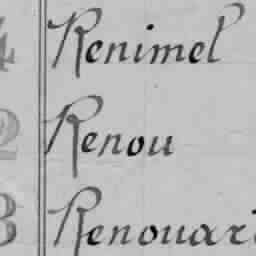 4 Renimel
2 Renou
3 Renouar